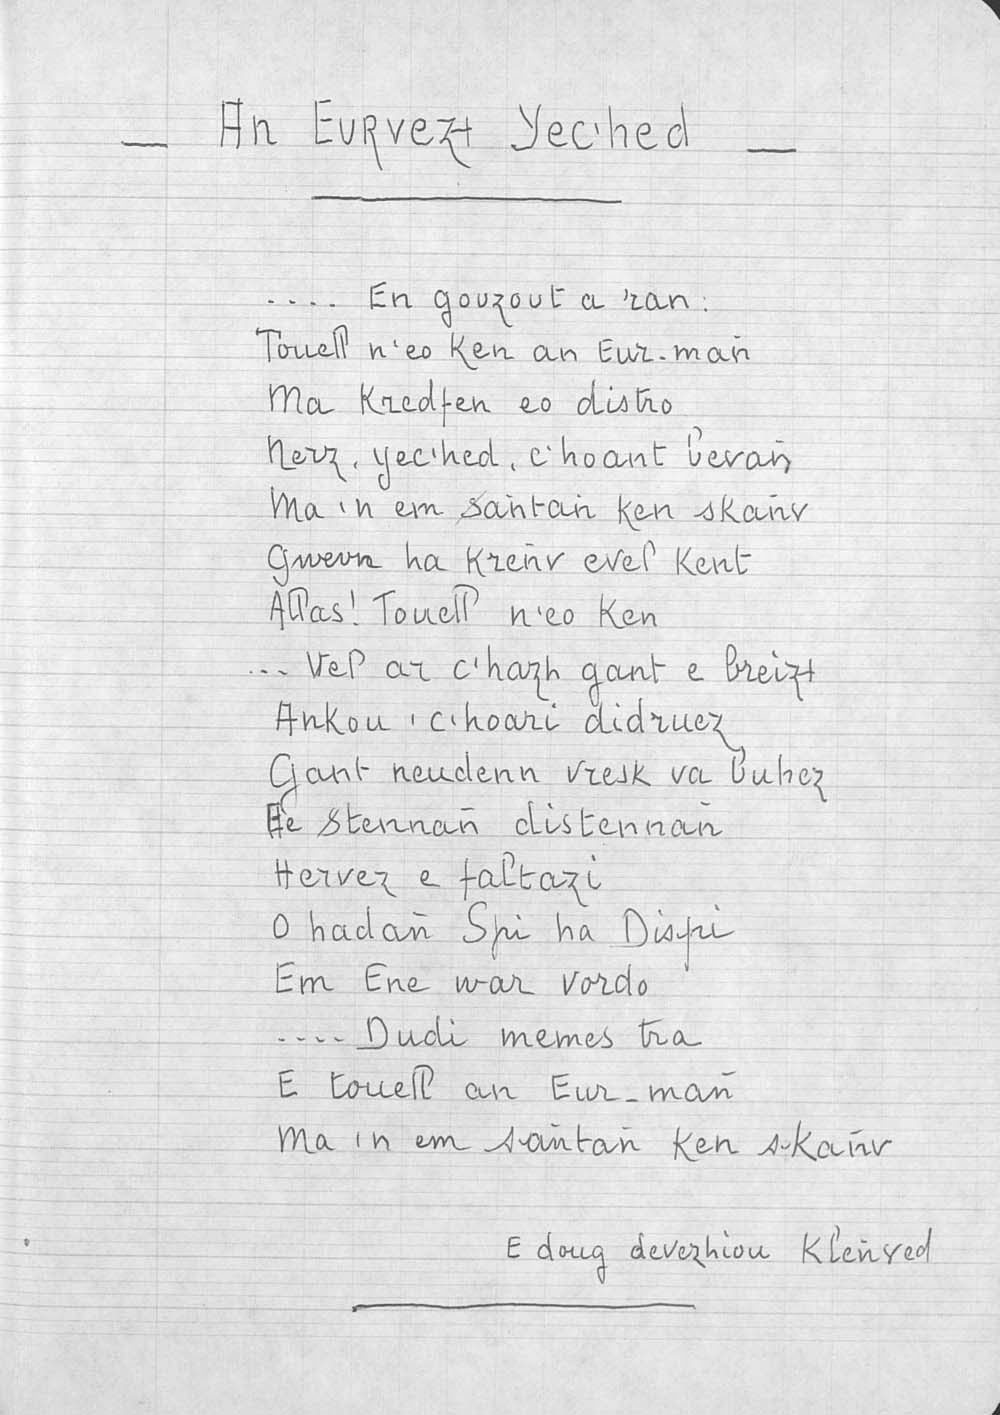 — An Eurvezh Yec'hed —
.... En gouzout a 'ran :
Touell n'eo Ken an Eur-mañ
Ma Kredfen eo distro
Nerz, yec'hed, c'hoant bevañ
Ma 'n em sañtañ ken skañv
Gwevn ha Kreñv evel Kent
Allas! Touell n'eo Ken
... Vel ar c'hazh gant e breizh
Ankou 'c'hoari didruez
Gant neudenn vresk va buhez
He stennañ distennañ
Hervez e faltazi
O hadañ Spi ha Dispi
Em Ene war vordo
.... Dudi memes tra
E touell an Eur-mañ
Ma 'n em sañtañ Ken skañv
E doug devezhiou Kleñved